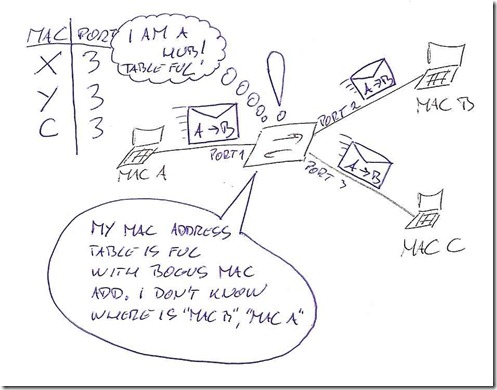 MAC PORT
X 3
Y 3
C 3
I AM A
HUB!
TABLE FUL!
!
A→B
MAC A
PORT 1
PORT 2
A→B
MAC B
PORT 3
A→B
MAC C
MY MAC ADDRESS
TABLE IS FUL
WITH BOGUS MAC
ADD. I DON'T KNOW
WHERE IS "MAC B", "MAC A"